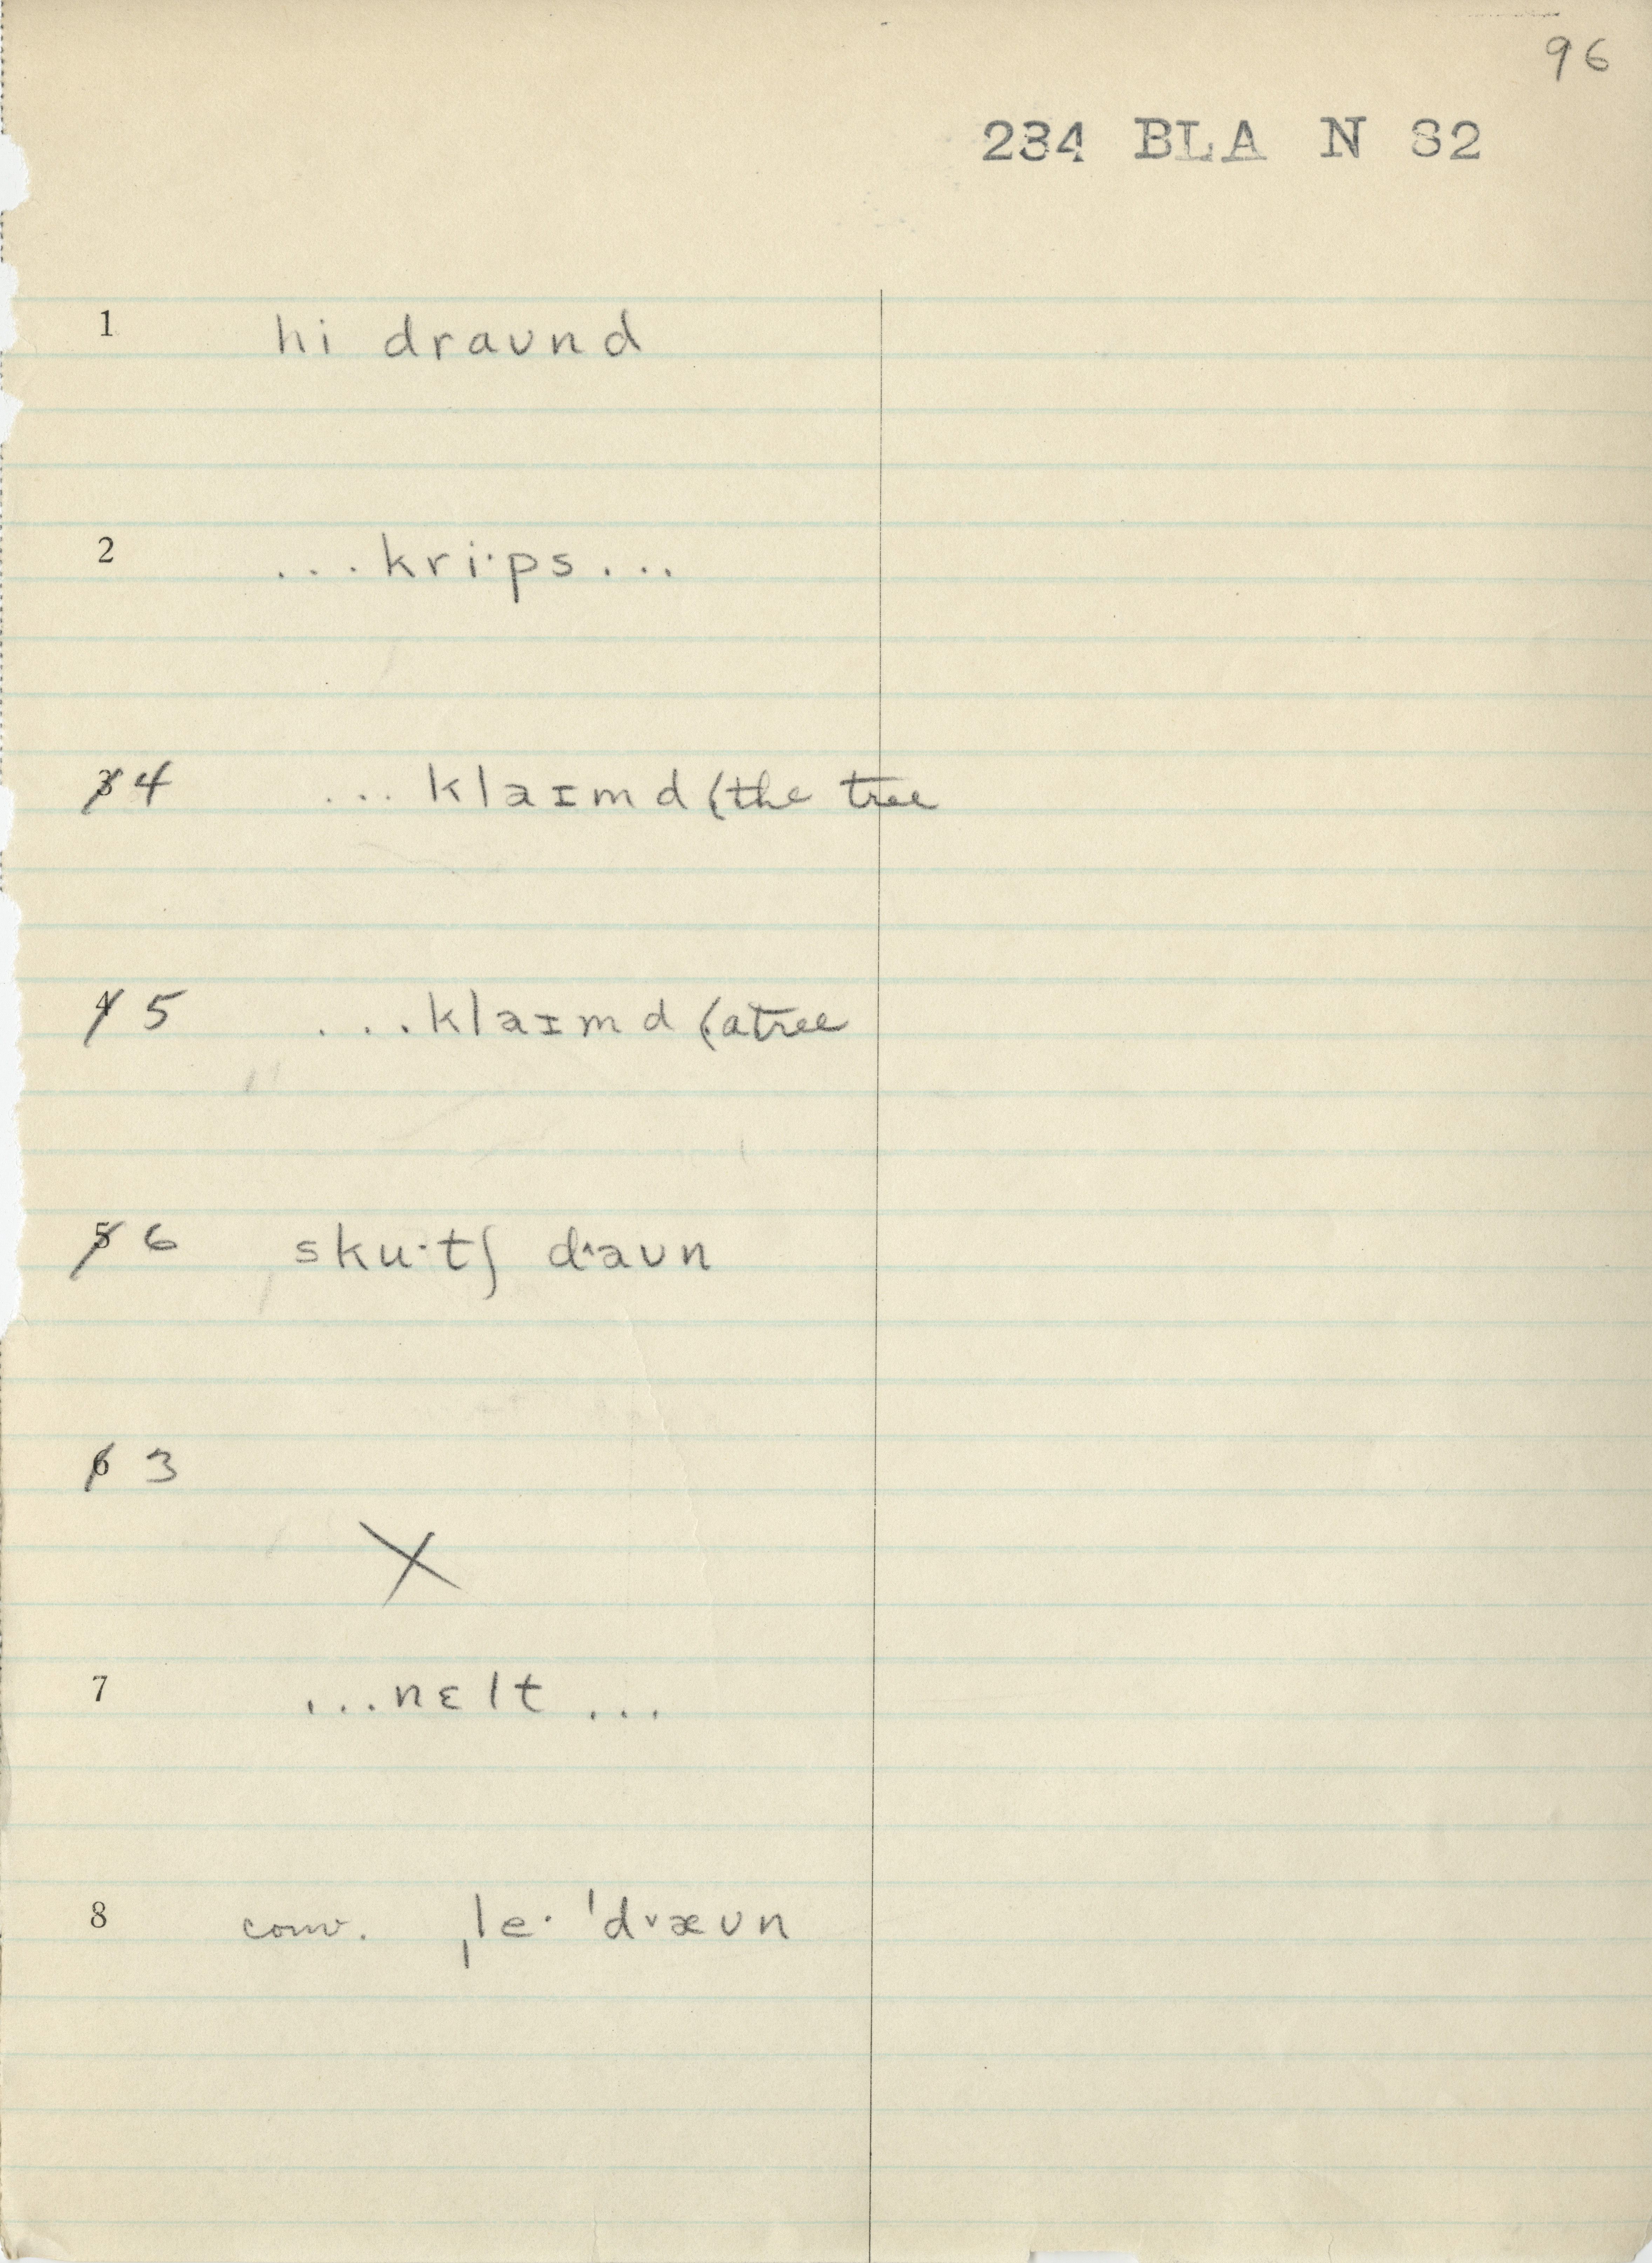 96
234 BLA N S2
1 hi draʊnd
2 ...kri·ps...
3 4 ...klaɪmd (the tree
4 5 ...klaɪmd (a tree
5 6 sku·tʃ d˄aʊn
6 3
X
7 ...nɛlt ...
8 conv. ˌle· ˈd˅æʊn